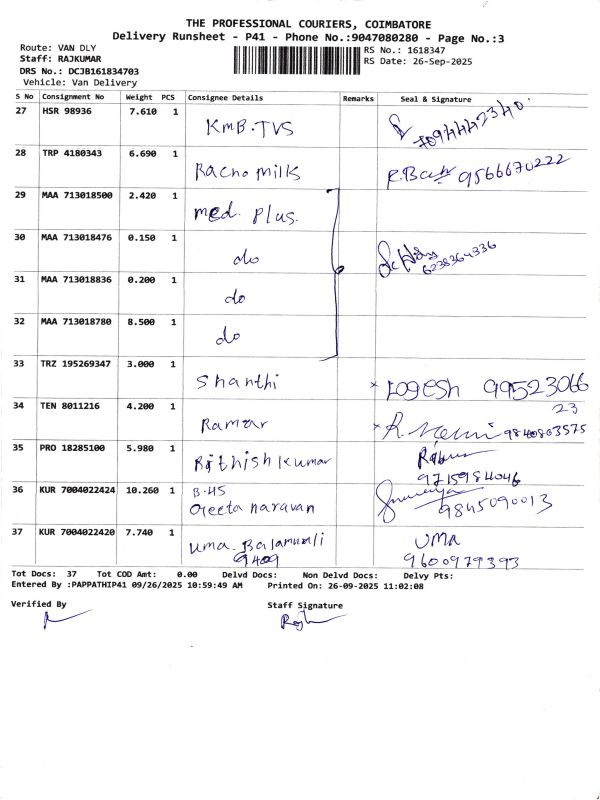 THE PROFESSIONAL COURIERS, COIMBATORE
Delivery Runsheet - P41 - Phone No.:9047080280 - Page No.:3
Route: VAN DLY
RS No.: 1618347
Staff: RAJKUMAR
RS Date: 26-Sep-2025
DRS No.: DCJB161834703
Vehicle: Van Delivery
S No Consignment No Weight PCS Consignee Details Remarks Seal & Signature
27 HSR 98936 7.610 1 KMB.TVS
28 TRP 4180343 6.690 1 Racho milks R.Bau 9566670222
29 MAA 713018500 2.420 1 med. plus.
30 MAA 713018476 0.150 1 do 6238364336
31 MAA 713018836 0.200 1 do
32 MAA 713018780 8.500 1 do
33 TRZ 195269347 3.000 1 Shanthi × Logesh 99523066
23
34 TEN 8011216 4.200 1 Ramar × R. 9840803575
35 PRO 18285100 5.980 1 Rithish kumar
9715984046
36 KUR 7004022424 10.260 1 B-45
Geeta narayan 9845090013
37 KUR 7004022420 7.740 1 uma Balamurali UMA
9409 9600979393
Tot Docs: 37 Tot COD Amt: 0.00 Delvd Docs: Non Delvd Docs: Delvy Pts:
Entered By :PAPPATHIP41 09/26/2025 10:59:49 AM Printed On: 26-09-2025 11:02:08
Verified By Staff Signature